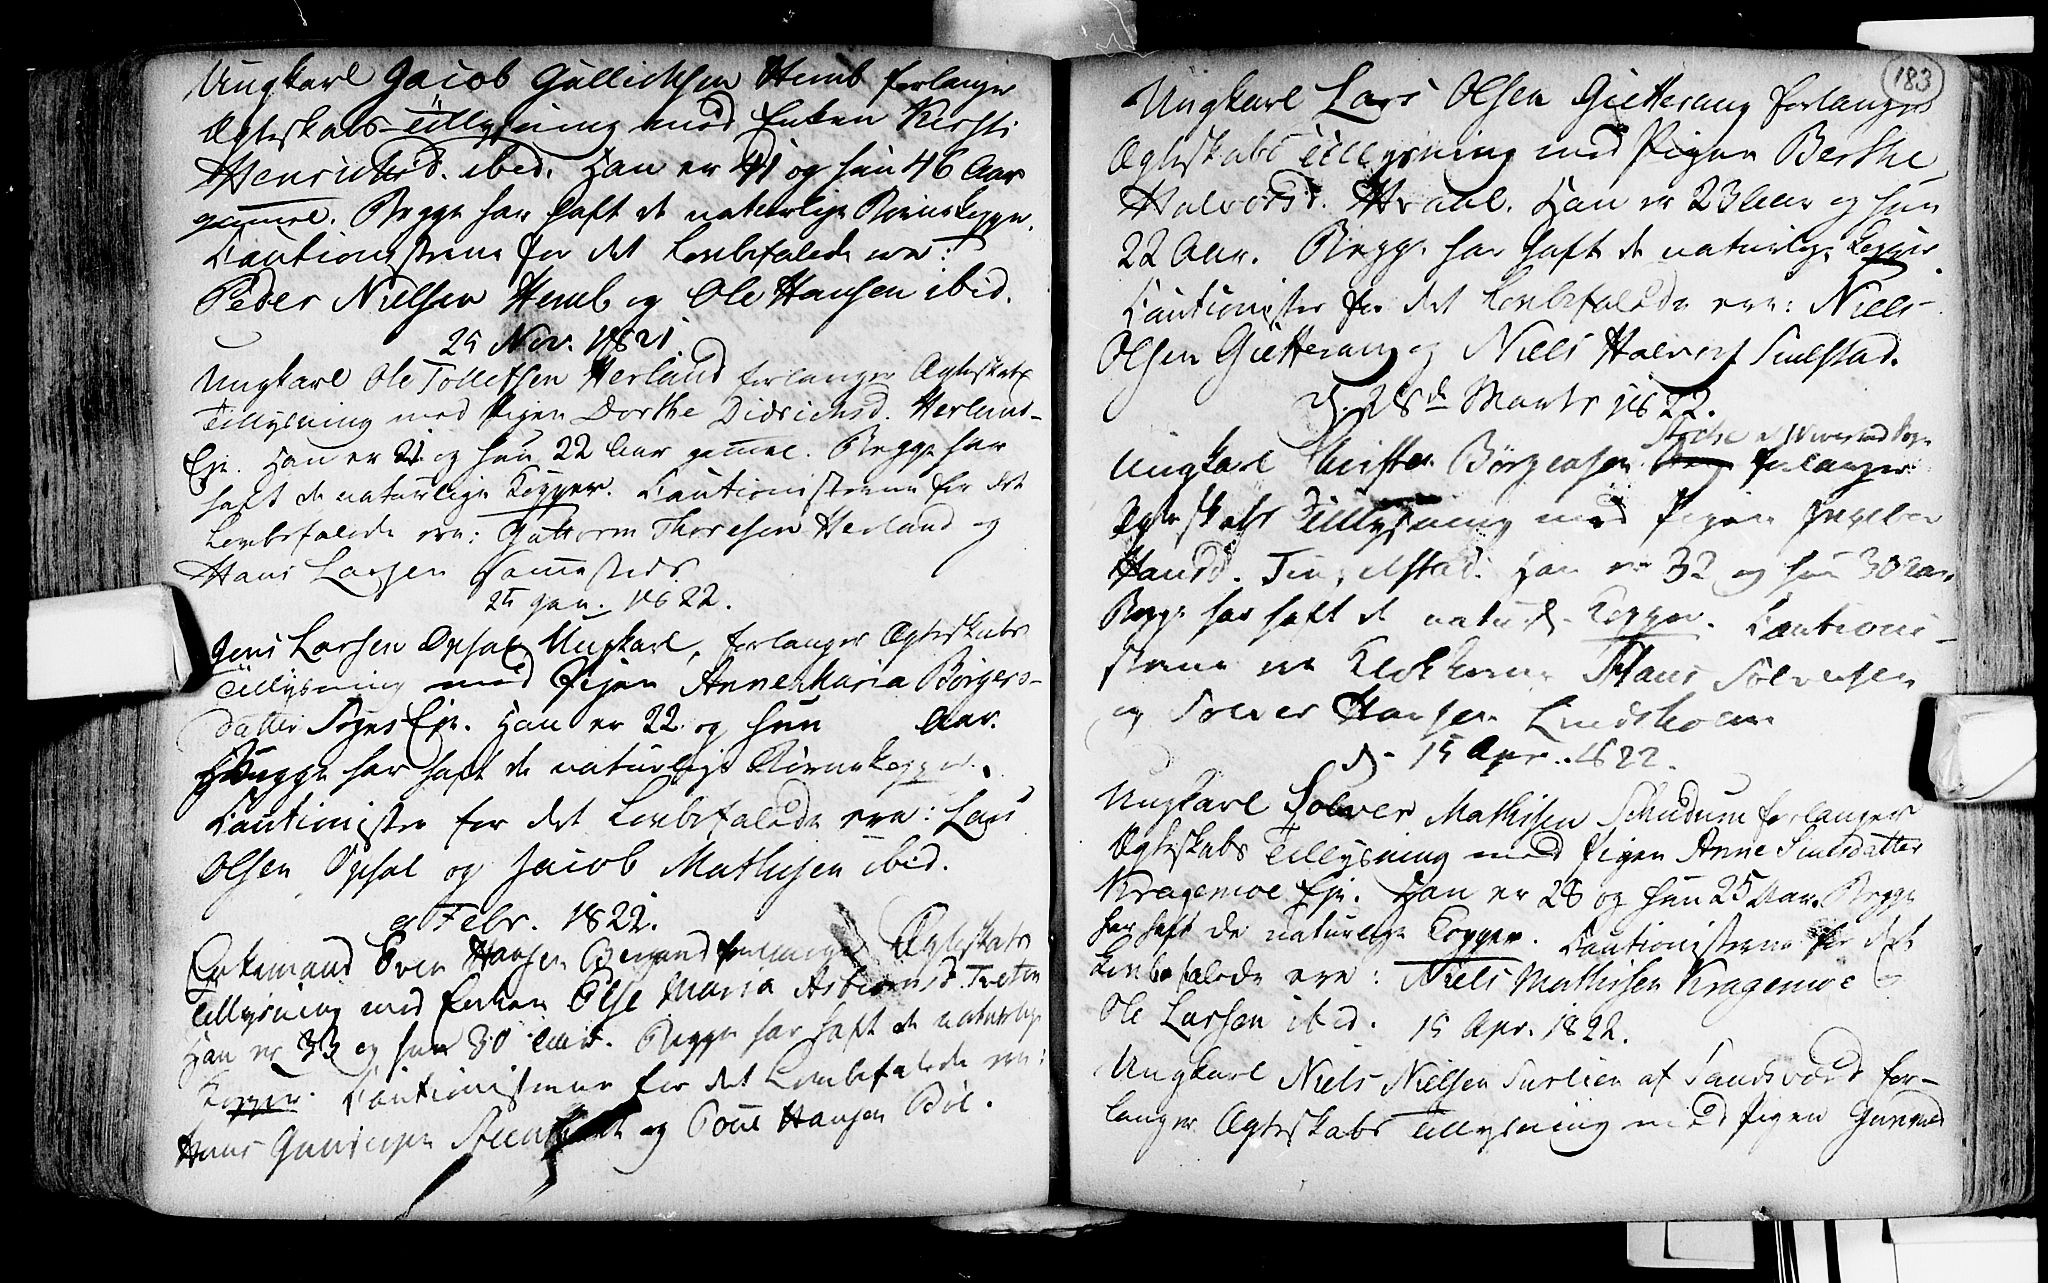 Ungkarl Jacob Gullichsen Hemb forlanger
Ægteskabs-Tillysning med Enken Kirsti
Henrichsd. ibid. Han er 41 og hun 46 Aar
gamel. Begge har haft de naturlige Börnekopper.
Cautionisterne for det Lovbefalede ere:
Peder Nielsen Hemb og Ole Hansen ibid.
25 Nov. 1821.
Ungkarl Ole Tollefsen Herland forlanger Ægteskabs
Tillysning med Pigen Dorthe Didrichsd. Herland-
Eje. Han er 21 og hun 22 Aar gamel. Begge har
haft de naturlige Kopper. Cautionisterne for det
Lovbefalede ere: Guttorm Thoresen Herland og
Hans Larsen sammesteds.
25 Jan. 1822.
Jens Larsen Opsal Ungkarl, forlanger Ægteskabs
Tillysning med Pigen Anne Maria Börgers-
datter Eje. Han er 22 og hun Aar.
Begge har haft de naturlige Börnekopper.
Cautionister for det Lovbefalede ere: Lars
Olsen Opsal og Jacob Mathisen ibid.
9 Febr. 1822.
Enkemand Even Hansen forlanger Ægteskabs
Tillysning med Enken Else Maria Asbiörnsd.
Han er 33 og hun 30 Aar. Begge har haft de naturlige
Kopper. Cautionisterne for det Lovbefalede ere:
Hans og Poul Hansen Böl.
183
Ungkarl Lars Olsen Gietterang forlanger
Ægteskabs Tillysning med Pigen Berthe
Halvorsd. Hvaal. Han er 23 Aar og hun
22 Aar. Begge har haft de naturlige Kopper.
Cautionister for det Lovbefalede ere: Niels
Olsen Gietterang og Niels Halvors.
d. 28de Marts 1822.
Ungkarl Christen Börgersen forlanger
Ægteskabs Tillysning med Pigen Ingebor
Hansd. Han er 32 og hun 30 Aar.
Begge har haft de naturl. Kopper. Cautioni-
sterne ere Klokkeren Hans Sölversen
og Sölver Hansen Lindsholm
d. 15 Apr. 1822.
Ungkarl Solver Mathisen forlanger
Ægteskabs Tillysning med Pigen Anne Simensdatter
Kragemoe Eje. Han er 28 og hun 25 Aar. Begge
har haft de naturlige Kopper. Cautionisterne for det
Lovbefalede ere: Niels Mathisen Kragemoe og
Ole Larsen ibid. 15 Apr. 1822.
Ungkarl Niels Nielsen af Sandsværd for-
langer Ægteskabs Tillysning med Pigen